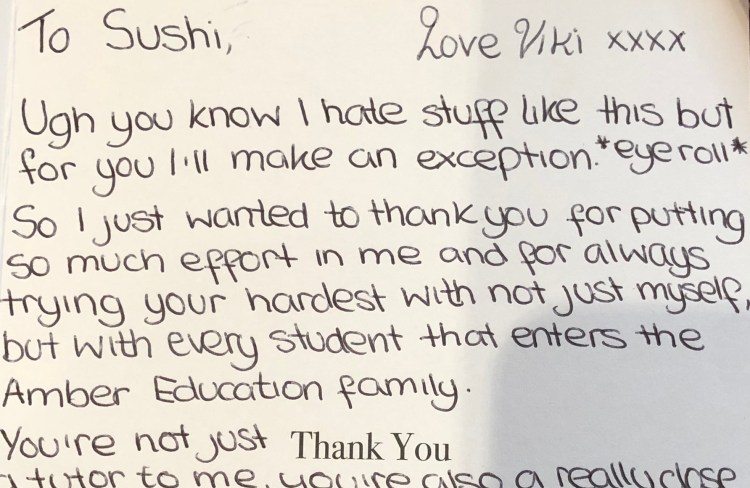 To Sushi, Love Viki xxxx
Ugh you know I hate stuff like this but
for you I'll make an exception.*eyeroll*
So I just wanted to thank you for putting
so much effort in me and for always
trying your hardest with not just myself,
but with every student that enters the
Amber Education family.
You're not just Thank You
a tutor to me, you're also a really close